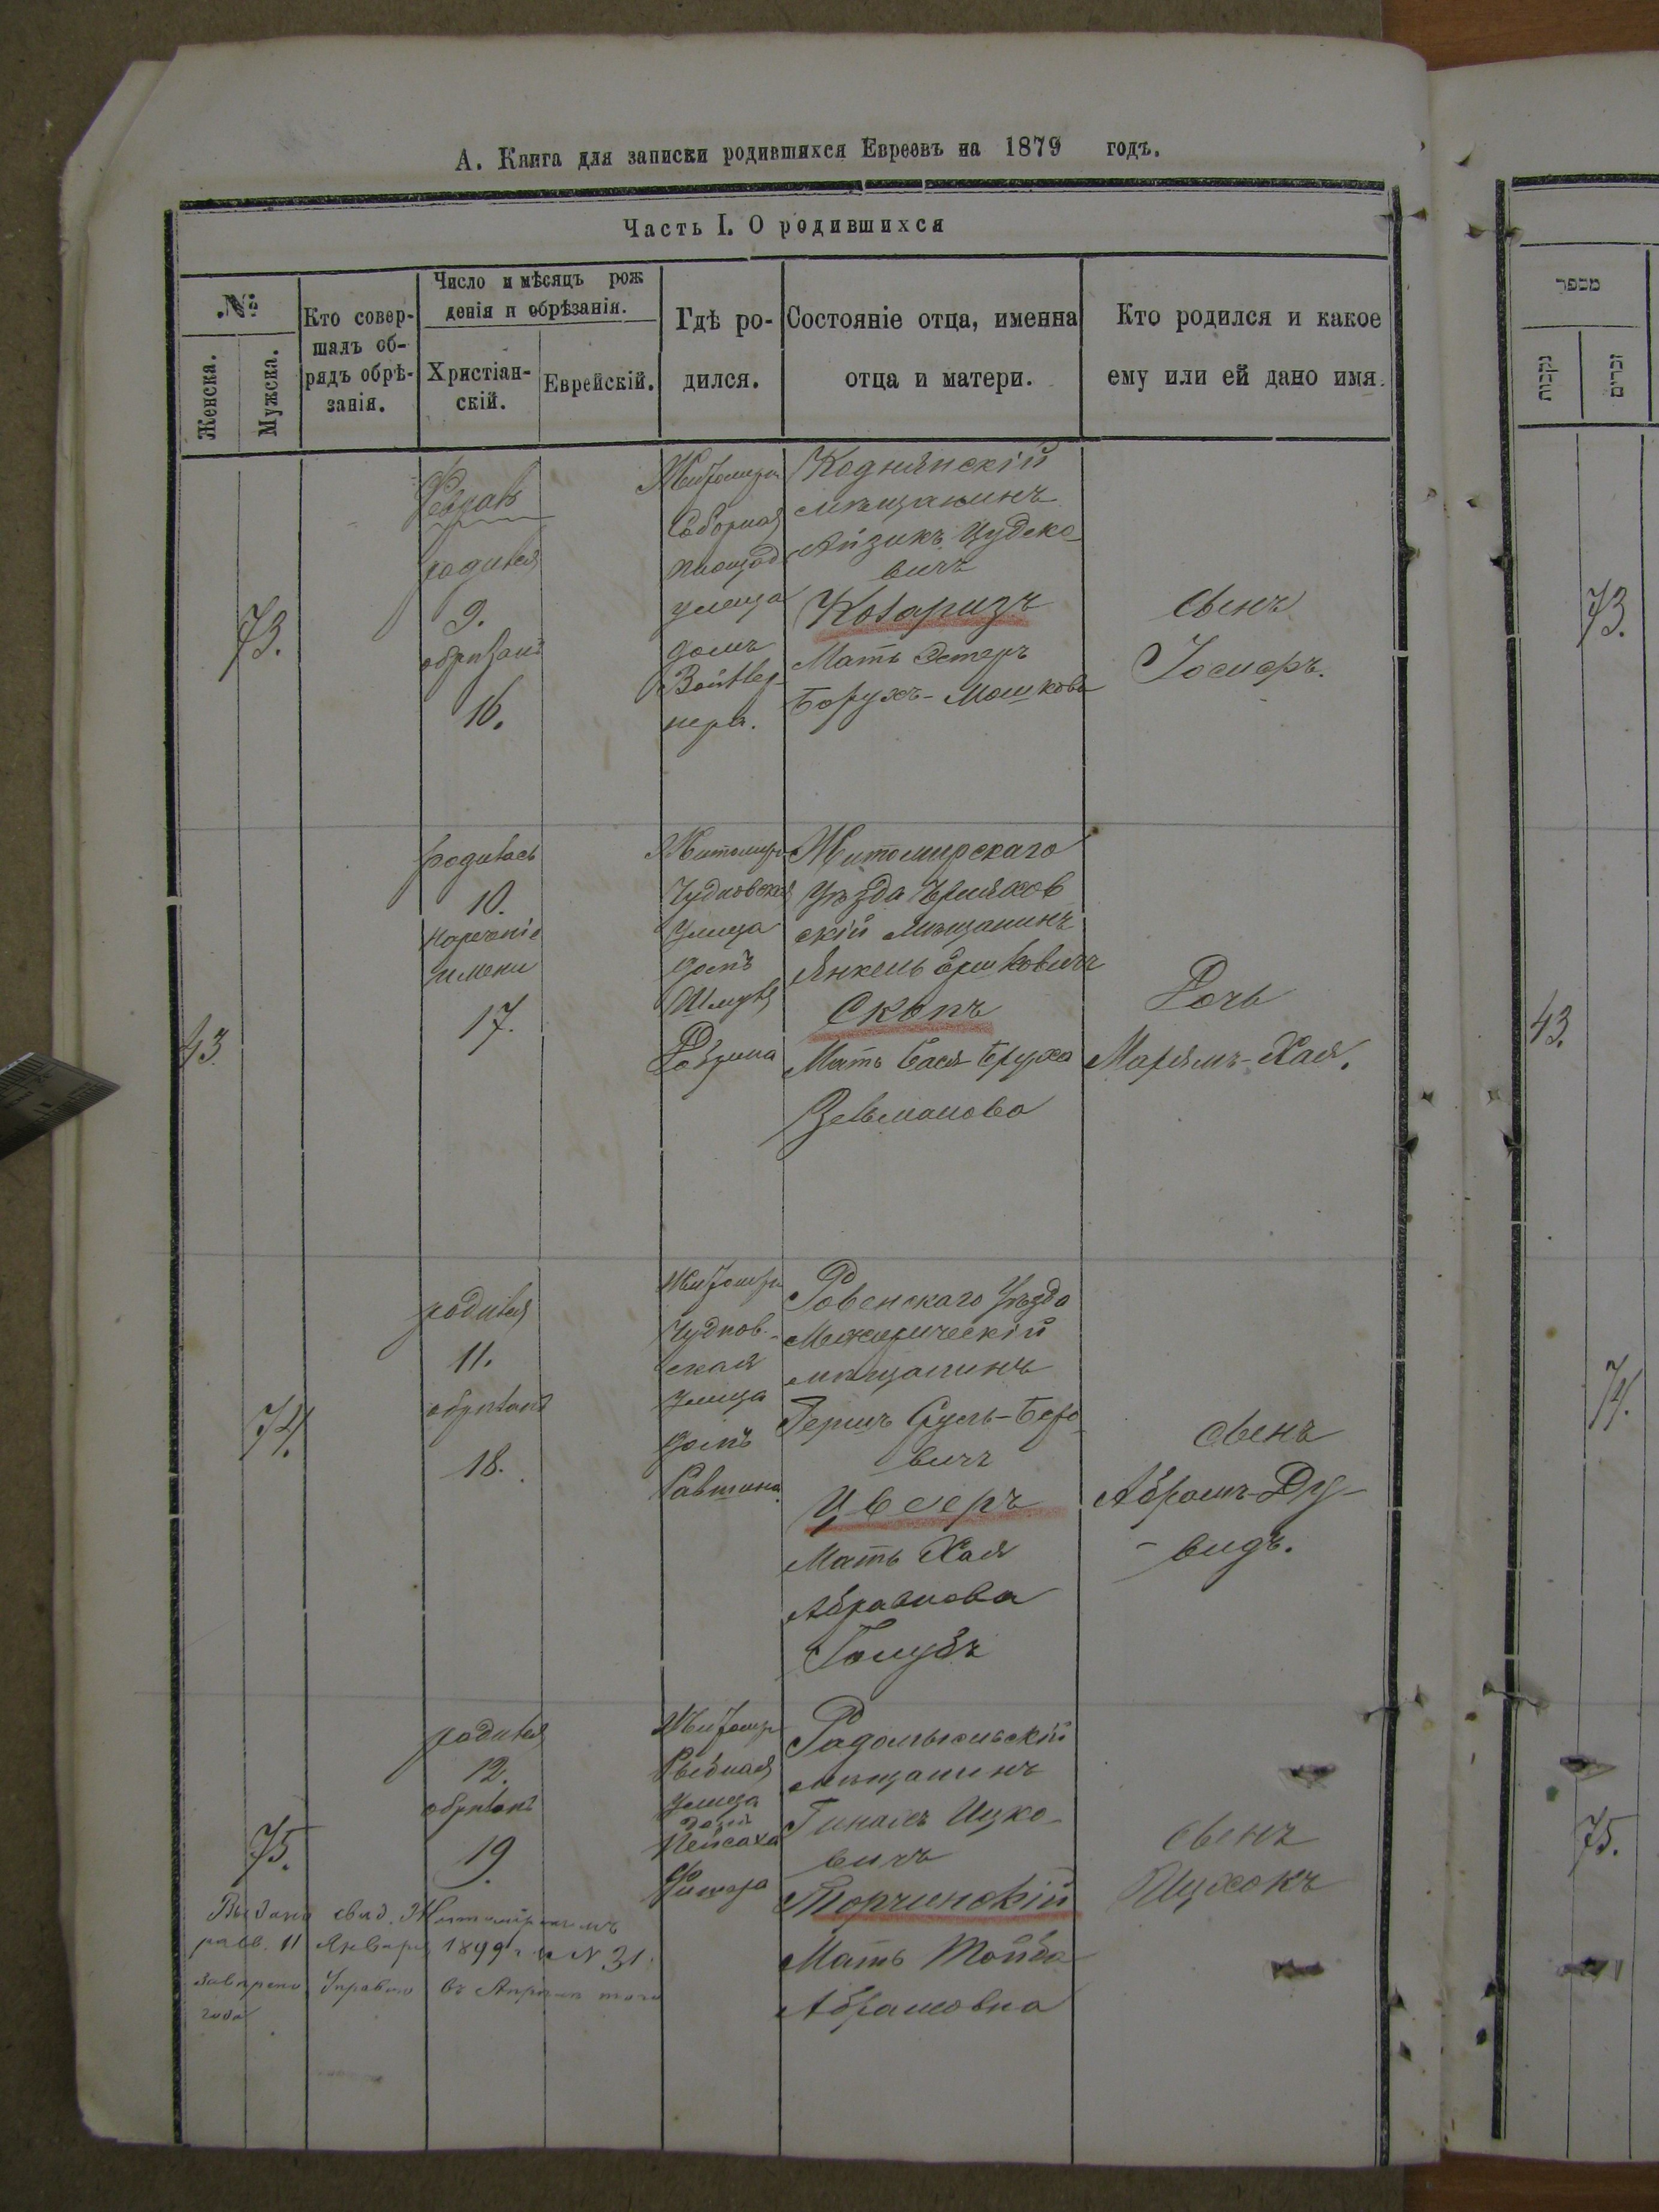 А. Книга для записки родившихся Евреевъ на 1879 годъ.
Часть I. О родившихся
№
Женска.
Мужска.
Кто совер-
шалъ об-
рядъ обрѣ-
занія.
Число и мѣсяцъ рож
денія и обрѣзанія.
Христіан-
скій.
Еврейскій.
Гдѣ ро-
дился.
Состояніе отца, именна
отца и матери.
Кто родился и какое
ему или ей дано имя.
73.
родился
9.
обрѣзанъ
16.
Житомиръ
Соборная
площад
улица
домъ
нера.
Коднянскій
мѣщанинъ
Айзикъ
вичъ
Мать Эстеръ
Борухъ-Мошкова
сынъ
43
родилась
10.
нареченіе
имени
17.
Житомиръ
Чудновская
улица
домъ
Шмуля
Житомирскаго
уѣзда
скій мѣщанинъ
Янкель Ершковичъ
Скопъ
Мать Бася Бруха
Зельманова
Дочь
Марьямъ-Хая.
74.
родился
11.
обрѣзанъ
18.
Житомиръ
Чуднов-
ская
улица
домъ
Ровенскаго уѣзда
Межерическій
мѣщанинъ
Гершъ Сруль-Беро-
вичъ
Мать Хая
Абрамова
Голубъ
сынъ
Абрамъ-Ду-
-видъ.
75.
родился
12.
обрѣзанъ
19.
Житомиръ
Рыбная
улица
домъ
Пейсаха
Фишера
Радомысльскій
мѣщанинъ
Ицко-
вичъ
Торчинскій
Мать Тойба
Абрамовна
сынъ
Ицхокъ
Выдано свид. Житомирскимъ
равв. 11 Января 1899 г. № 31.
года
מספר
נקבות
זכרים
73.
43.
74.
75.